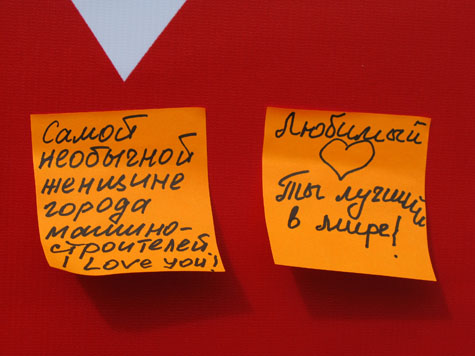 Самой
необычной
женщине
города
машино-
строителей
I Love you!
Любимый
Ты лучший
в мире!